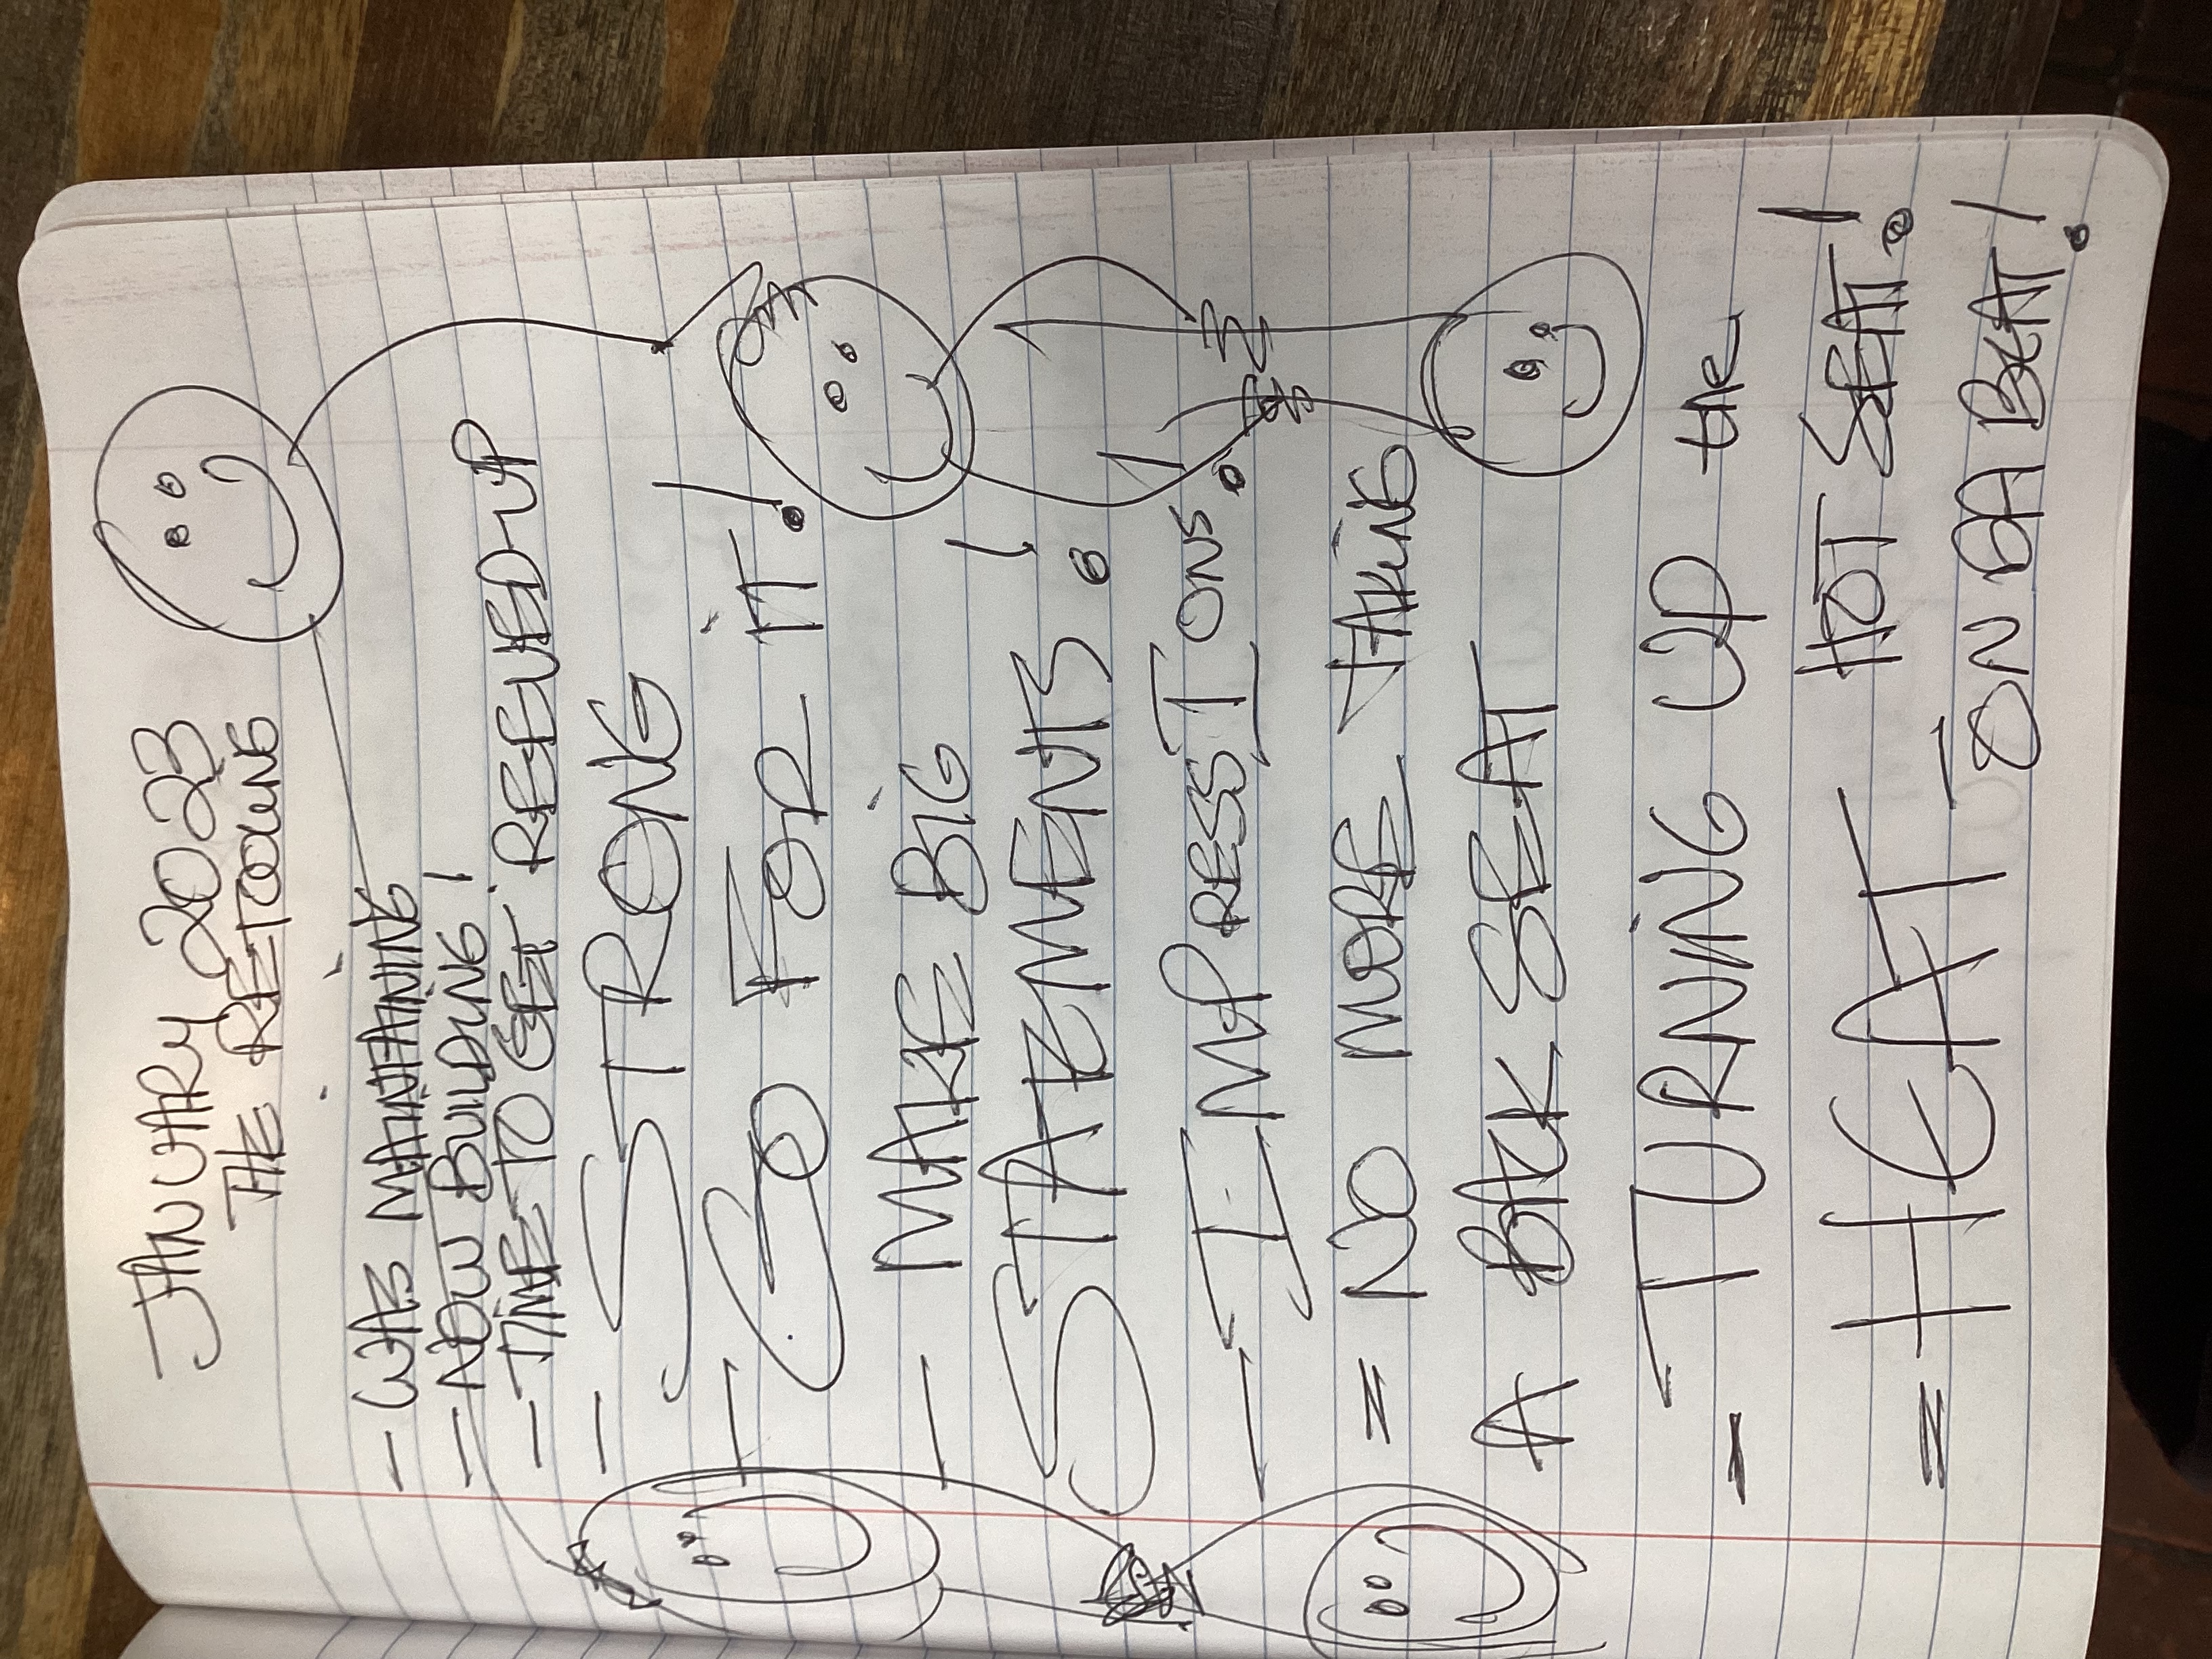 JANUARY 2023
THE RETOOLING
- WAS MAINTAINING
= NOW BUILDING!
- TIME TO GET REEVED-UP
- STRONG
- GO FOR IT!
- MAKE BIG
STATEMENTS!
- IMPRESSIONS!
= NO MORE TAKING
A BACK SEAT
- TURNING UP the
HOT SEAT!
= HEAT - ON DA BEAT!